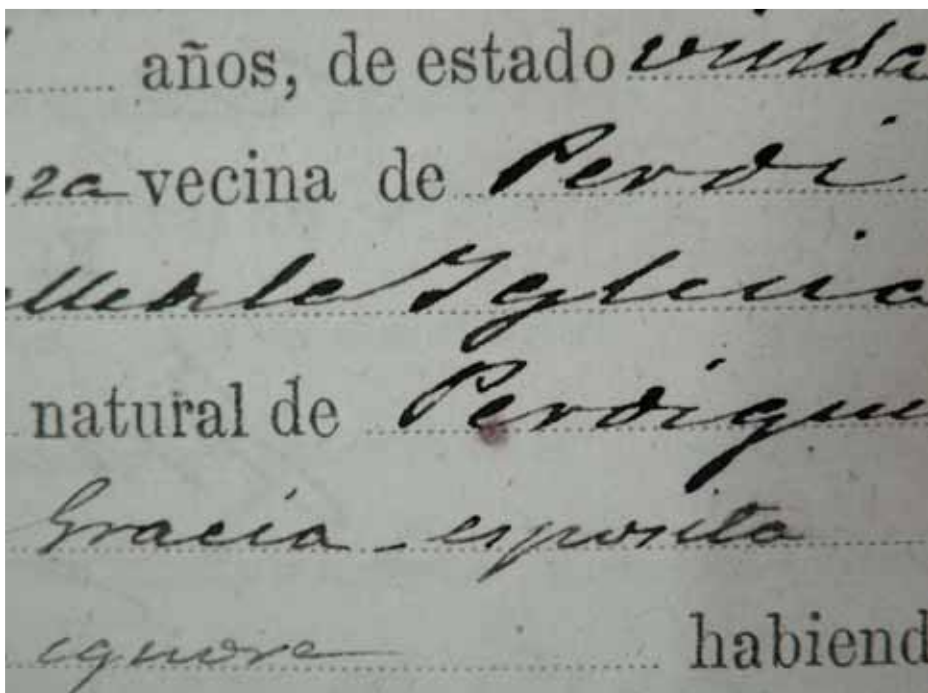 años, de estado viuda
vecina de Perdi
de la Iglesia
natural de Perdigue
Gracia - esposita
ignora habiend